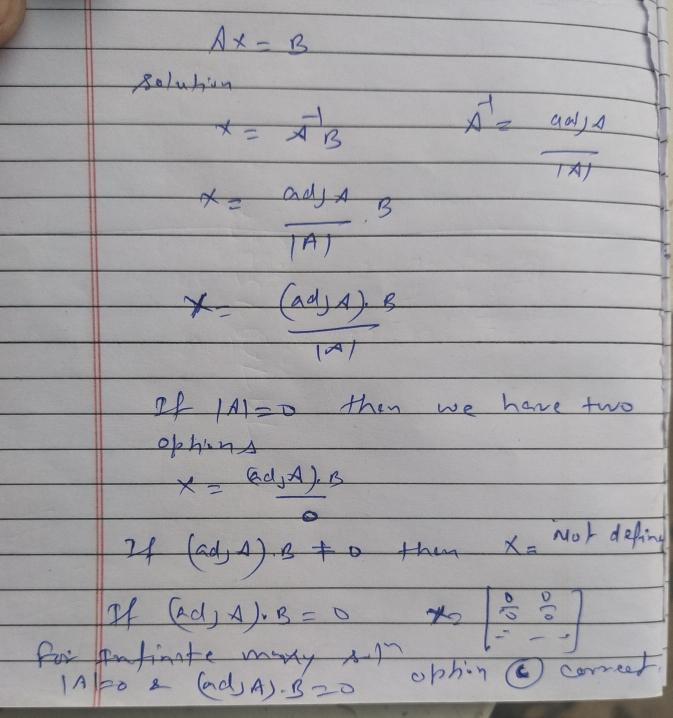 Ax = B
solution
x = A⁻¹B    A⁻¹ = adj A / |A|
x = adj A / |A| . B
x = (adj A). B / |A|
If |A|=0 then we have two
options
x = (adj A). B / 0
If (adj A). B ≠ 0 then x = Not define
If (adj A). B = 0    x = [0/0 0/0 - - -]
For Infinite many solⁿ
|A|=0 & (adj A). B=0    option (c) correct.